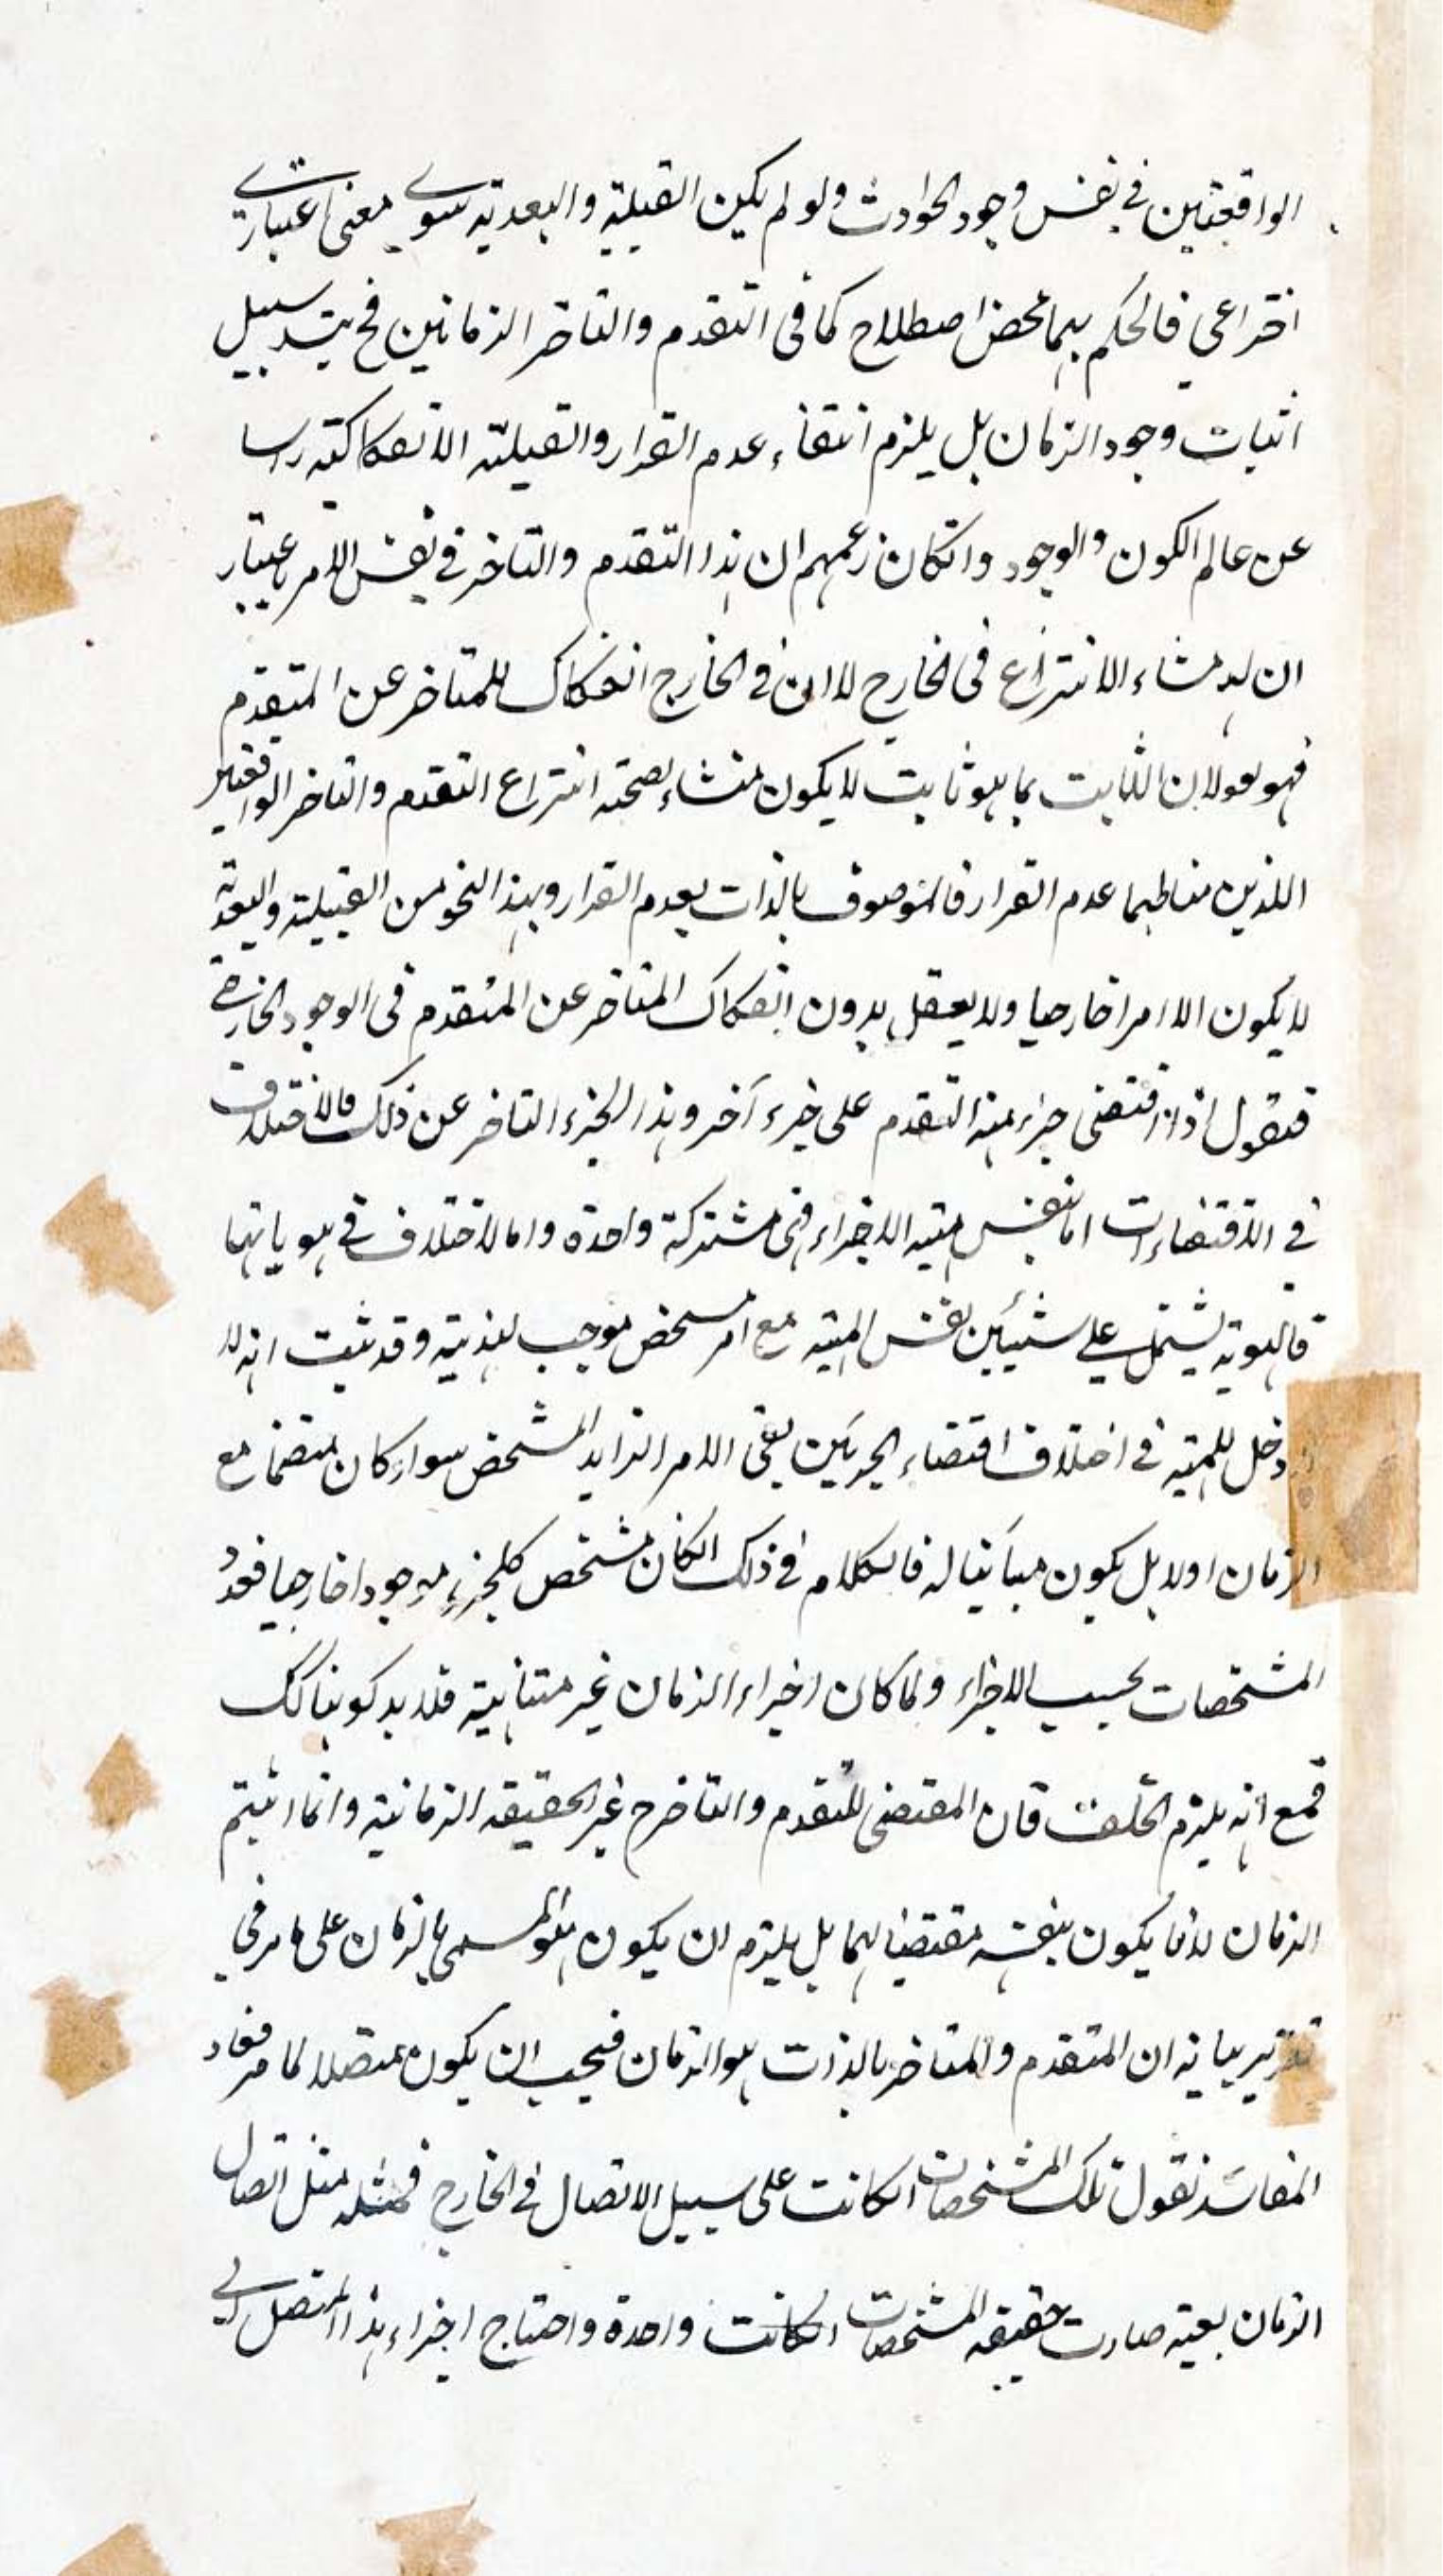 الواقعتين في نفس وجود الحوادث ولو لم يكن القبلية والبعدية سوى معنى اعتباري
اختراعي فالحكم بهما محض اصطلاح كما في التقدم والتاخر الزمانين فح ينسد سبيل
اثبات وجود الزمان بل يلزم انتفاء عدم القرار والقبلية الانفكاكية راسا
عن عالم الكون والوجود وانكان زعمهم ان هذا التقدم والتاخر في نفس الامر باعتبار
ان له منشاء الانتزاع في الخارج لا ان في الخارج انفكاك للمتاخر عن المتقدم
فهو هو لان الثابت بما هو ثابت لا يكون منشاء لصحة انتزاع التقدم والتاخر الواقعين
اللذين مناطهما عدم القرار فالموصوف بالذات بعدم القرار وبهذا النحو من القبلية والبعدية
لا يكون الا امرا خارجيا ولا يعقل بدون انفكاك المتاخر عن المتقدم في الوجود الخارجي
فنقول اذا اقتضى جزء منه التقدم على جزء آخر وهذا الجزء التاخر عن ذلك فالاختلاف
في الاقتضاءات اما بنفس مهية الاجزاء فهى مشتركة واحدة واما لاختلاف في هوياتها
فالهوية يشتمل على شيئين نفس المهية مع امر مشخص موجب لهذيته وقد ثبت انه لا
دخل للمهية في اختلاف اقتضاء الجزئين بقى الامر الزايد المشخص سواء كان منضما مع
الزمان اولا بل يكون مبائنا له فالكلام في ذلك انكان مشخص كل جزء موجودا خارجيا فعدد
المشخصات بحسب الاجزاء ولما كان اجزاء الزمان غير متناهية فلا بد كونها كك
فمع انه يلزم الخلف فان المقتضى للتقدم والتاخر ح غير الحقيقة الزمانية وانما اثبتم
الزمان لانما يكون بنفسه مقتضيا لهما بل يلزم ان يكون هو المسمى بالزمان على ما مر في
تقرير بيانه ان المتقدم والمتاخر بالذات هو الزمان فيجب ان يكون متصلا لما مر فعاد
المفاسد نقول تلك المشخصات انكانت على سبيل الاتصال في الخارج فمثله مثل اتصال
الزمان بعينه صارت حقيقة المشخصات انكانت واحدة واحتاج اجزاء هذا المتصل الى